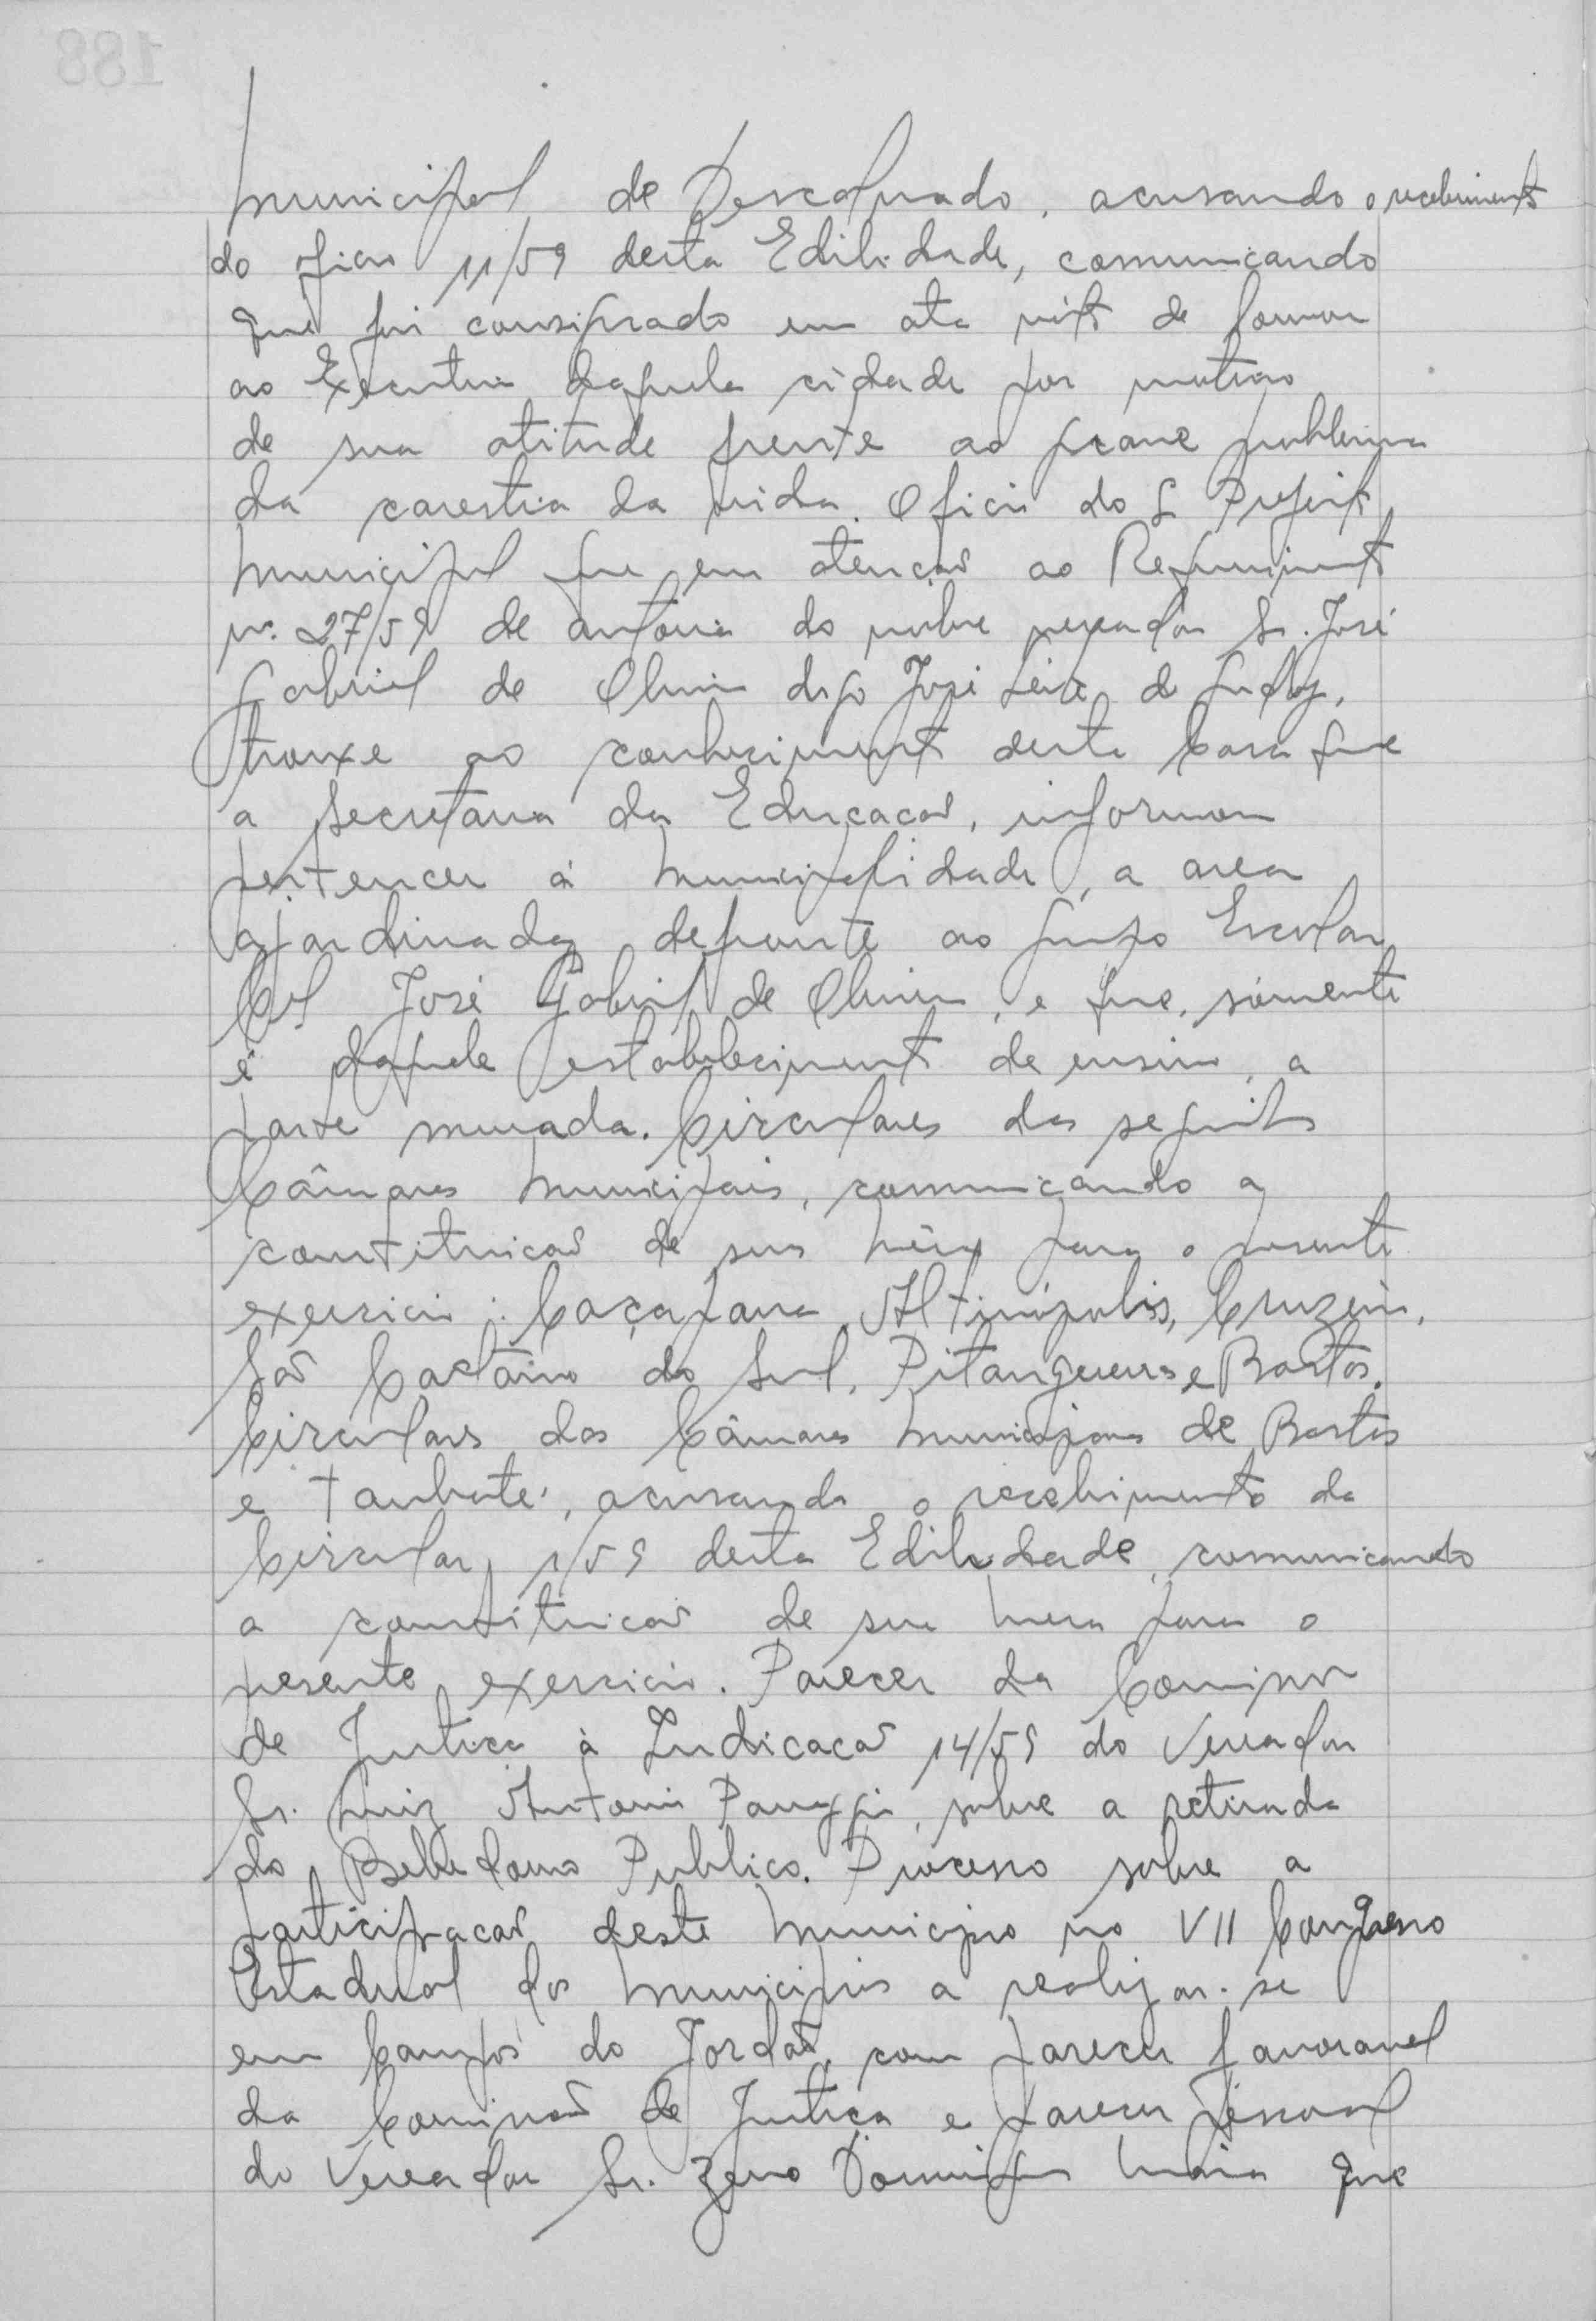 Municipal de Descalvado, acusando o recebimento
do oficio 11/59 desta Edilidade, comunicando
que foi consignado em ata voto de louvor
ao Executivo daquela cidade por motivo
de sua atitude frente ao grave problema
da carestia da vida. Oficio do S. Prefeito
Municipal que em atenção ao Requerimento
nº. 27/59 de autoria do nobre vereador Sr. José
Gabriel de Oliveira José de
trouxe ao conhecimento desta Casa que
a Secretaria da Educação, informou
pertencer à Municipalidade, a area
ajardinada defronte ao Grupo Escolar
Cel José Gabriel de Oliveira, e que, sómente
é daquele estabelecimento de ensino, a
parte murada. Circulares das seguintes
Câmaras Municipais, comunicando a
constituição de sua Mêsa para o presente
exercicio: Caçapava, Altinópolis, Cruzeiro,
São Caetâno do Sul, Pitangueiras e Bastos.
Circulares das Câmaras Municipais de Bastos
e Taubaté, acusando o recebimento da
Circular 1/59 desta Edilidade, comunicando
a constituição de sua Mesa para o
presente exercicio. Parecer da Comissão
de Justiça à Indicação 14/59 do Vereador
Sr. Luiz Antonio Panuzzi, sobre a retirada
do Bebedouro Publico. Processo sobre a
participação deste Municipio no VII Congresso
Estadual dos Municipios a realizar-se
em Campos do Jordão, com parecer favoravel
da Comissão de Justiça e parecer pessoal
do Vereador Sr. Zeno Domingos Maia que